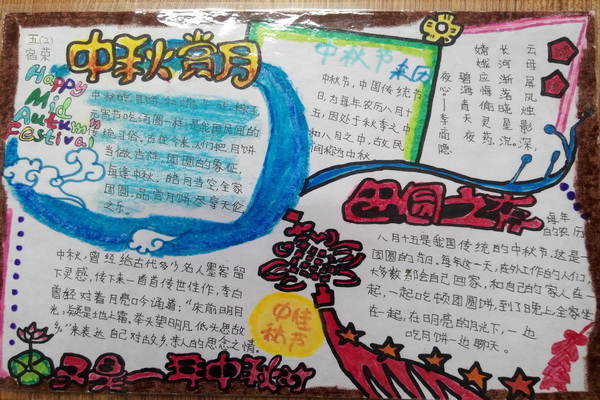 五(2)
Happy
Mid
Autumn
Festival
中秋赏月
元宵节吃汤圆一样,是我国民间的
传统习俗,古往今来,人们把月饼
当做吉祥,团圆的象征,
每逢中秋,皓月当空,全家
团圆,品尝月饼,尽享天伦
之乐。
中秋节
来历
中秋节,中国传统节
日,为每年农历八月十
五,因处于秋季之中
和八月之中,故民
间称为中秋
云母屏风烛影深,
长河渐落晓星沉。
嫦娥应悔偷灵药,
碧海青天夜夜心。
—李商隐
团圆之夜
每年
的农历
八月十五是我国传统的中秋节,这是一
团圆的节日,每年这一天,在外工作的人们
大多数都会自己回家,和自己的家人在一
起,一起吃顿团圆饼,到了晚上全家坐
在一起,在明亮的月光下,一边
吃月饼一边聊天。
中秋,曾经给古代多少名人墨客留
下灵感,传下来一首首传世佳作,李白
曾经对着月亮吟诵道:“床前明月
光,疑是地上霜。举头望明月,低头思故
乡。”来表达自己对故乡亲人的思念之情。
中佳
秋节
又是一年中秋时